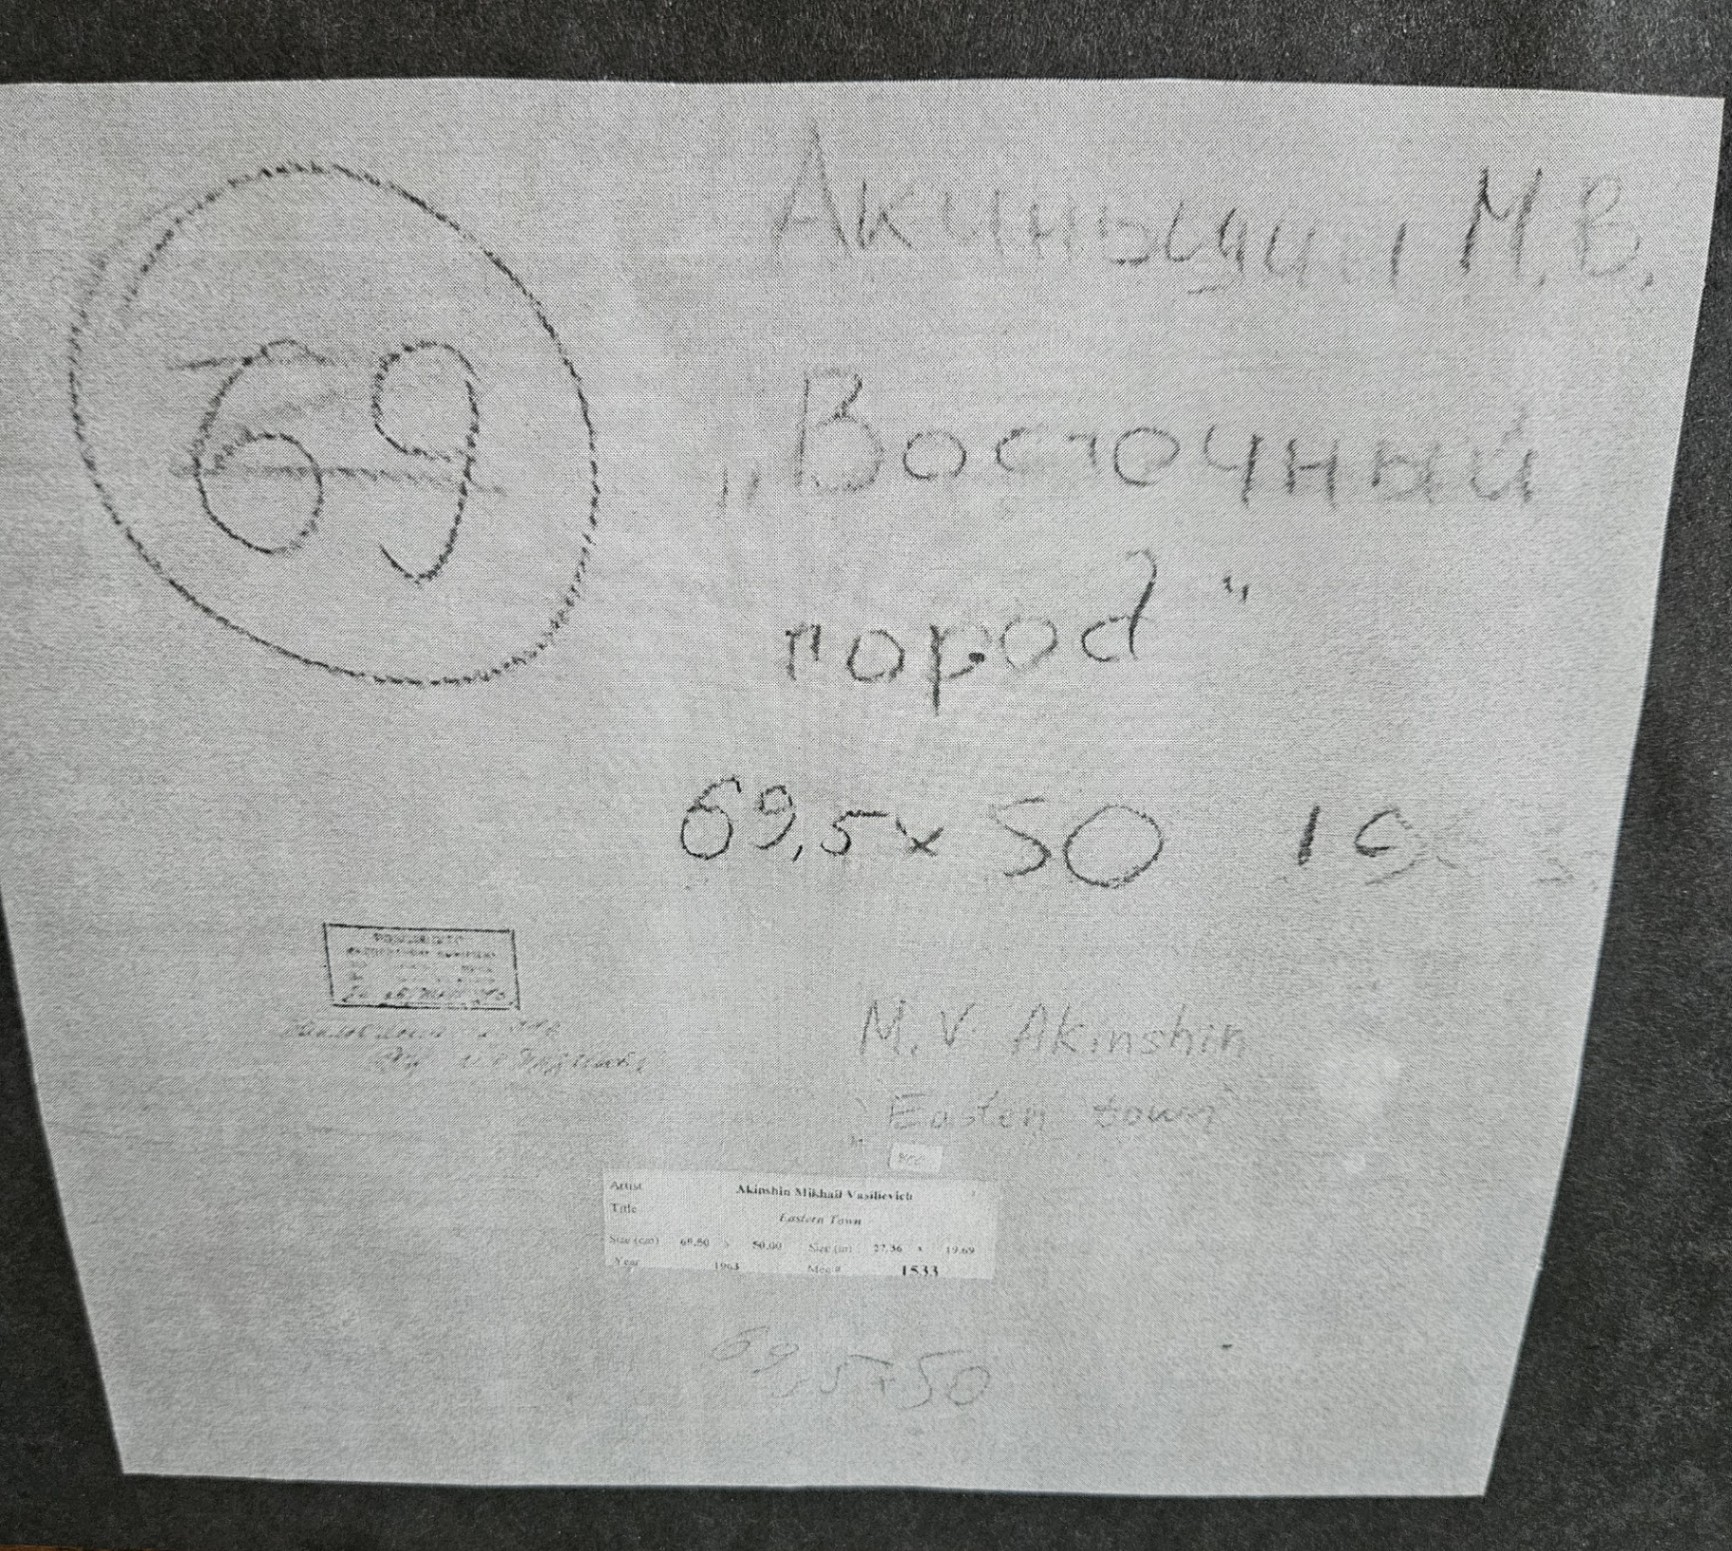 69
Акиньшин, М.В.
„Восточный
город"
69,5 x 50 19
M.V. Akinshin
Eastern town
Artist Akinshin Mikhail Vasilievich
Title Eastern Town
Size (cm) 69.50 x 50.00 Size (in) 27.36 x 19.69
Year 1963 Mec # 1533
69,5x50